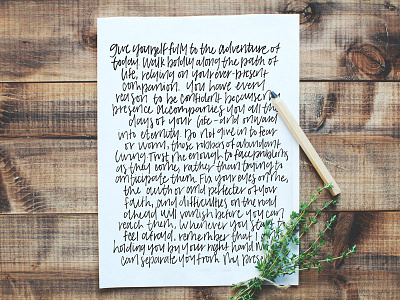 Give yourself fully to the adventure of
today. Walk boldly along the path of
life, relying on your ever-present
companion. You have every
reason to be confident because my
presence accompanies you all the
days of your life - and onward
into eternity. Do not give in to fear
or worry, those robbers of abundant
living. Trust me enough to face problems
as they come, rather than trying to
anticipate them. Fix your eyes on me,
the author and perfecter of your
faith, and difficulties on the road
ahead will vanish before you can
reach them. Whenever you start to
feel afraid, remember that I am
holding you by your right hand.
can separate you from My presence